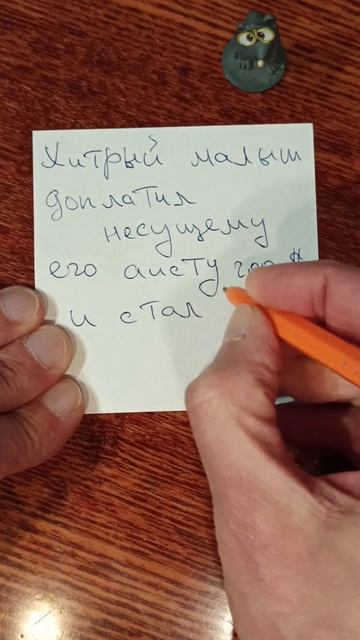 Хитрый малыш
доплатил
несущему
его аисту
и стал